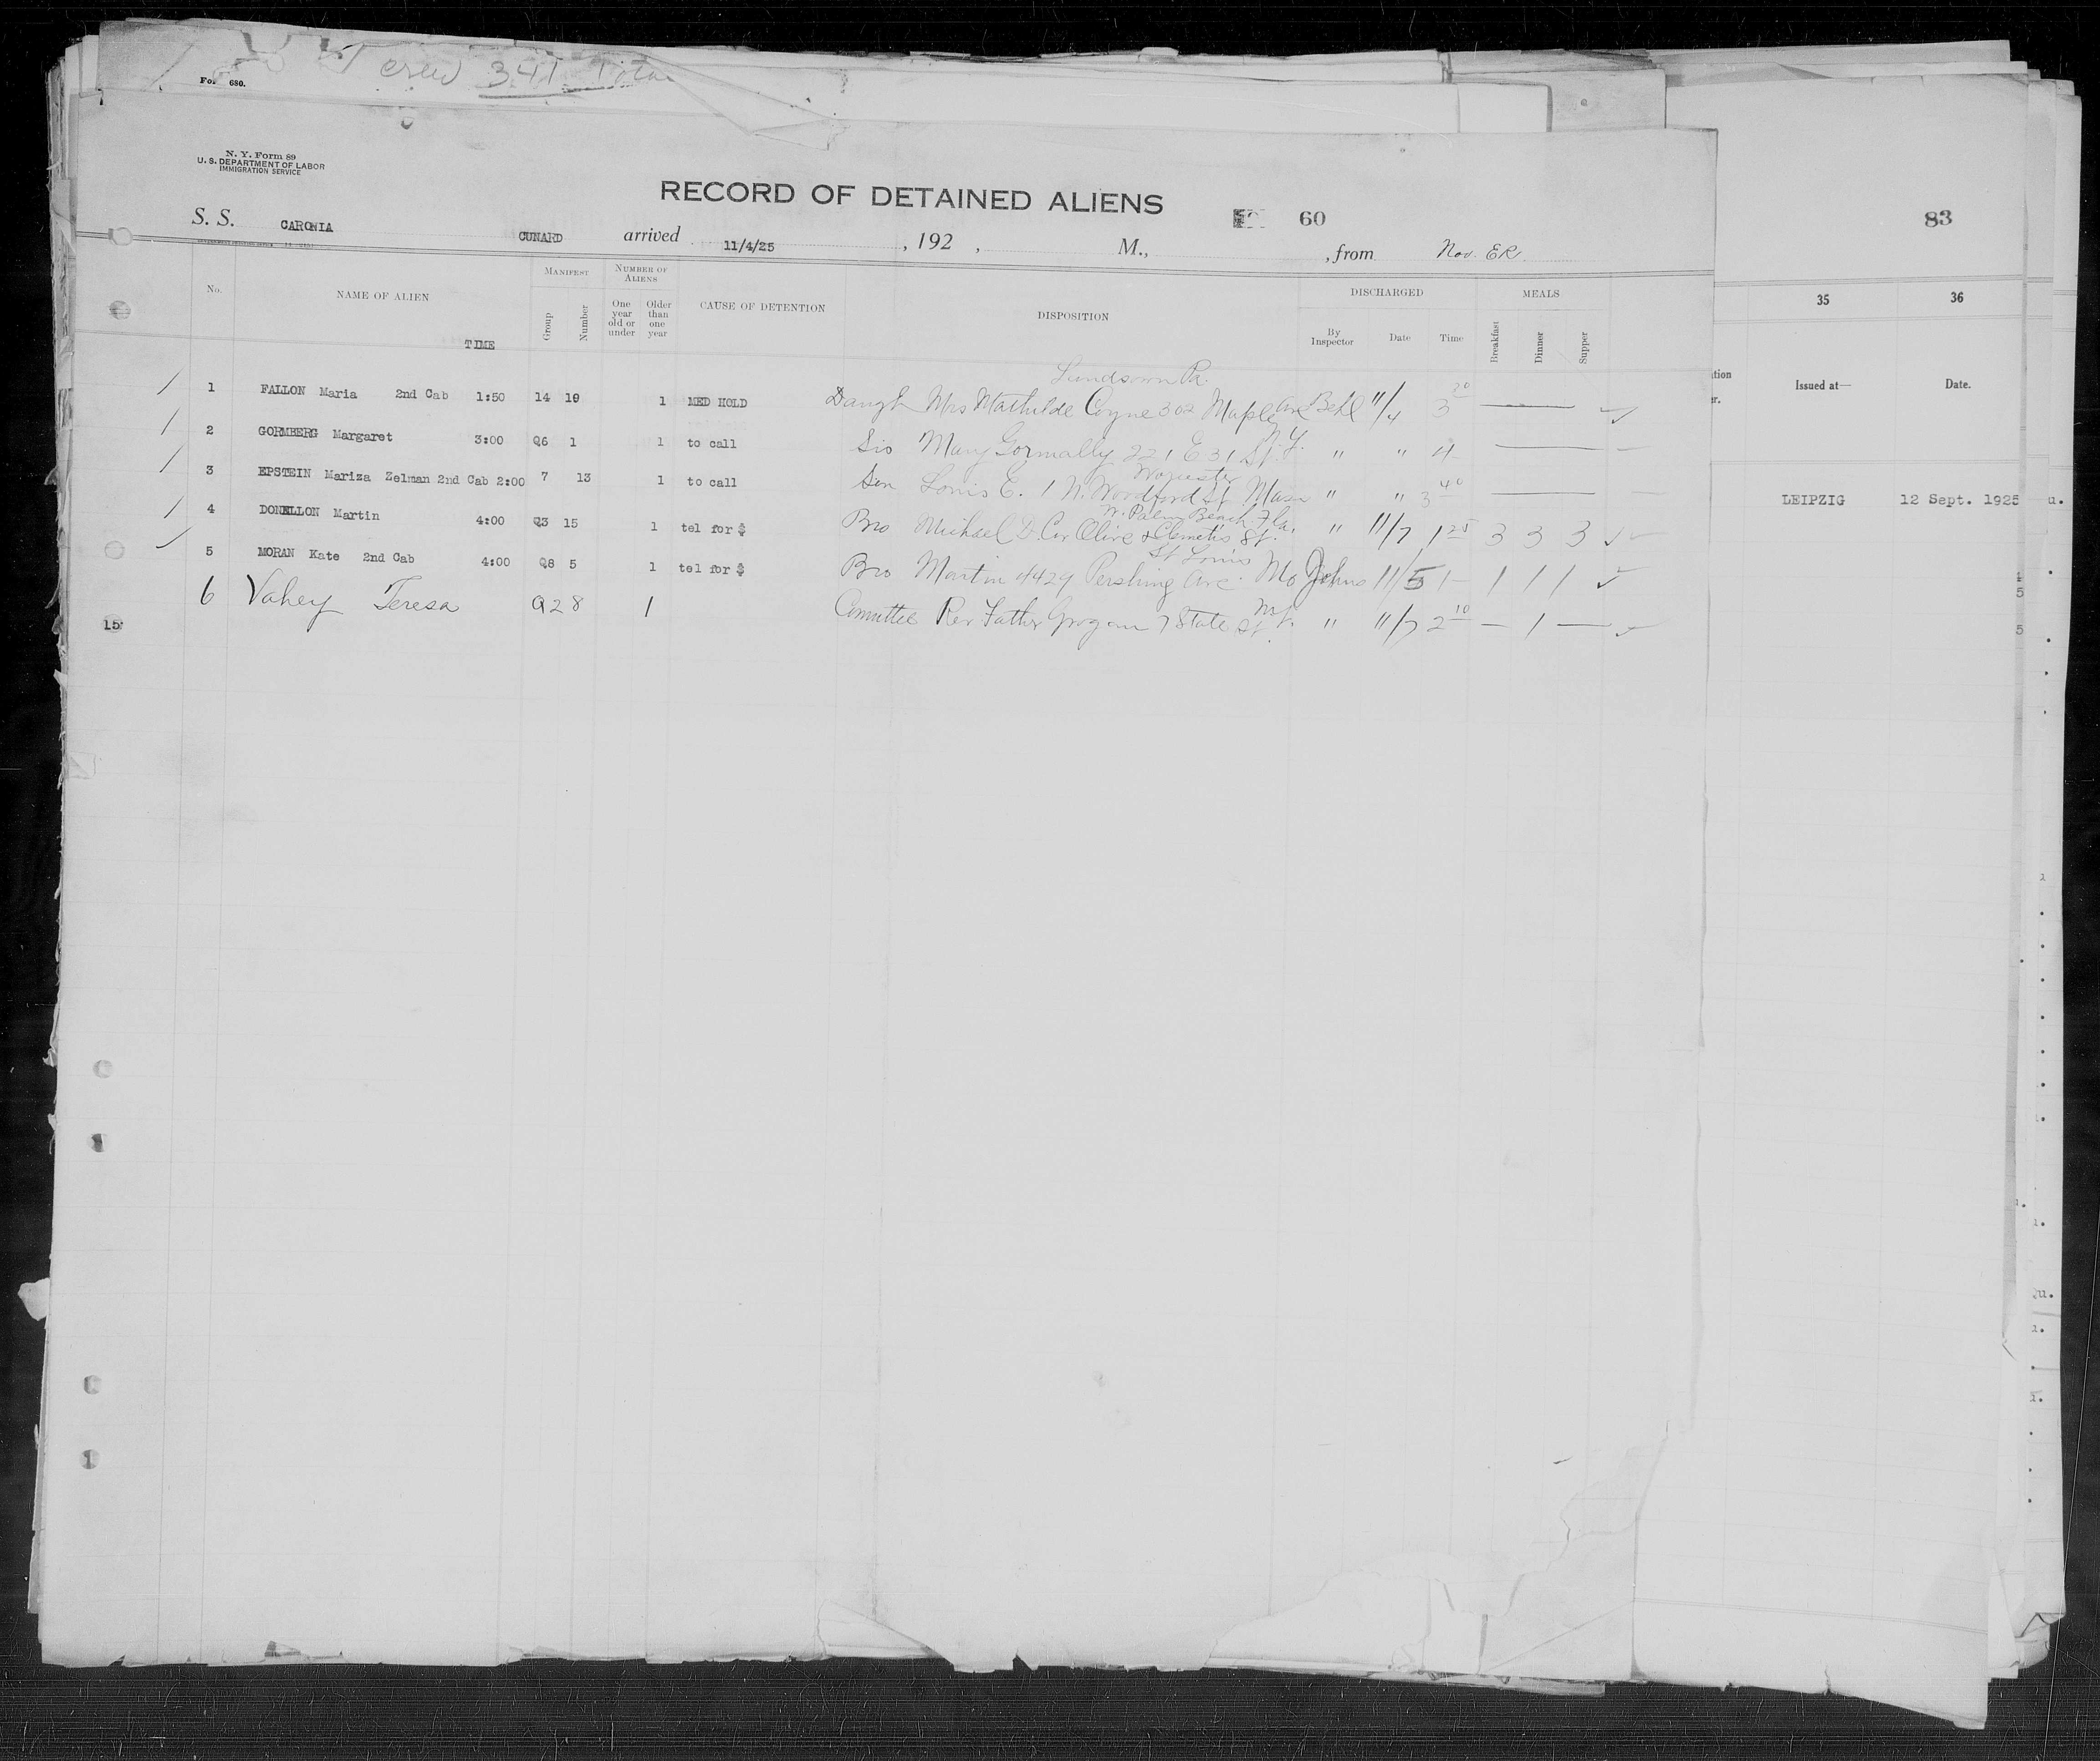 crew 341 Total
680.
N. Y. Form 89
U. S. DEPARTMENT OF LABOR
IMMIGRATION SERVICE
RECORD OF DETAINED ALIENS
60
83
S. S. CARONIA CUNARD arrived 11/4/25, 192 , M., , from Nov. ER
No. NAME OF ALIEN TIME MANIFEST Group Number NUMBER OF ALIENS One year old or under Older than one year CAUSE OF DETENTION DISPOSITION DISCHARGED By Inspector Date Time MEALS Breakfast Dinner Supper
35 36
Issued at— Date.
Lansdown Pa.
1 FALLON Maria 2nd Cab 1:50 14 19 1 MED HOLD Daugh Mrs Mathilde Coyne 302 Maple Ave Behl 11/4 3 20
2 GORMBERG Margaret 3:00 Q6 1 1 to call Sis Mary Gormally 221 E 31 St. N.Y. " " 4
Worcester
3 EPSTEIN Mariza Zelman 2nd Cab 2:00 7 13 1 to call Son Louis E. 1 N. Woodford St Mass " " 3 40
LEIPZIG 12 Sept. 1925
W. Palm Beach Fla.
4 DONELLON Martin 4:00 Q3 15 1 tel for $ Bro Michael D. Cor Olive & Clemetis St. " 11/7 1 25 3 3 3
St Louis
5 MORAN Kate 2nd Cab 4:00 Q8 5 1 tel for $ Bro Martin 4429 Pershing Ave. Mo Johns 11/5 1 1 1 1
6 Vahey Teresa Q2 8 1 Comittee Rev Father Grogan 7 State St. N.Y. " 11/7 2 10 — 1 —
15